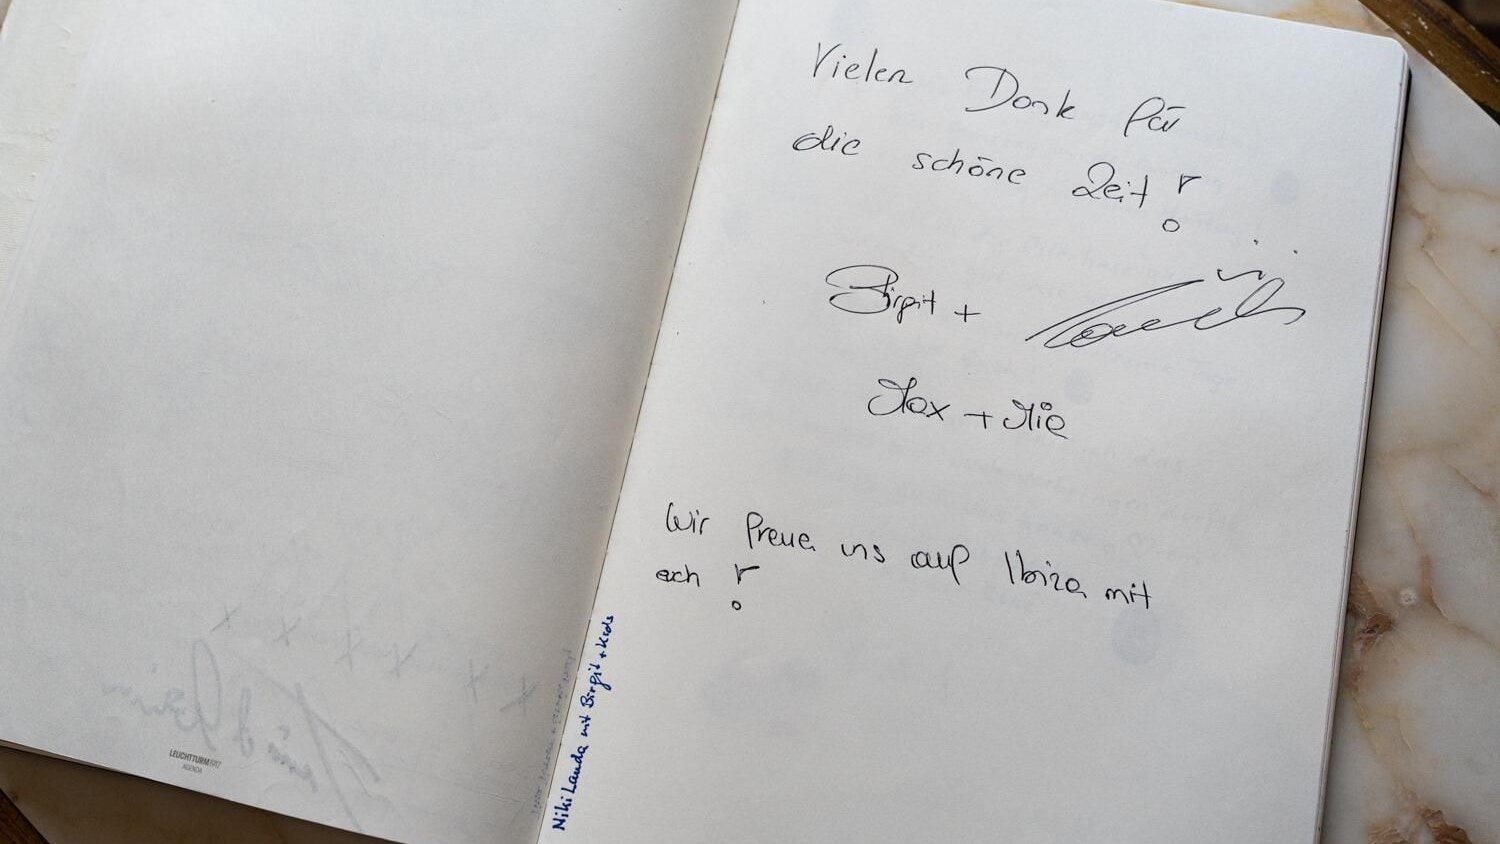 Vielen Dank für
die schöne Zeit!
Birgit +
Max + Mie
Wir freuen uns auf Ibiza mit
euch!
Niki Lauda mit Birgit + Kids
LEUCHTTURM1917
AGENDA